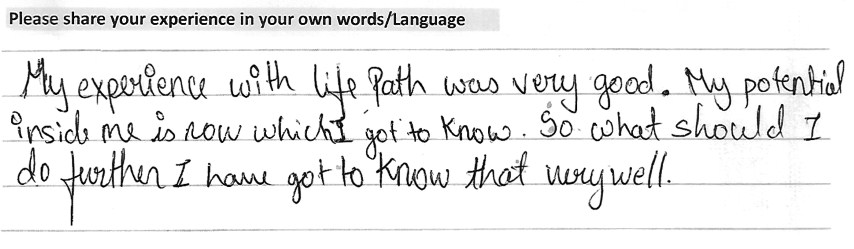 Please share your experience in your own words/Language
My experience with life Path was very good. My potential
inside me is now which I got to know. So what should I
do further I have got to know that very well.